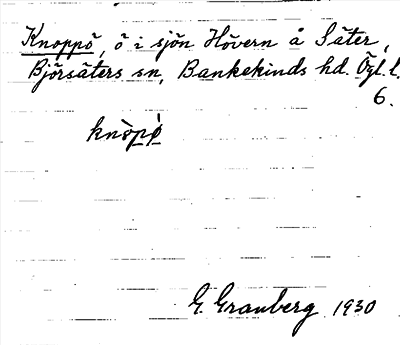 Knoppö, ö i sjön Hövern å Säter,
Björsäters sn, Bankekinds hd. Ögl. l.
6.
knòpè
G. Granberg 1930